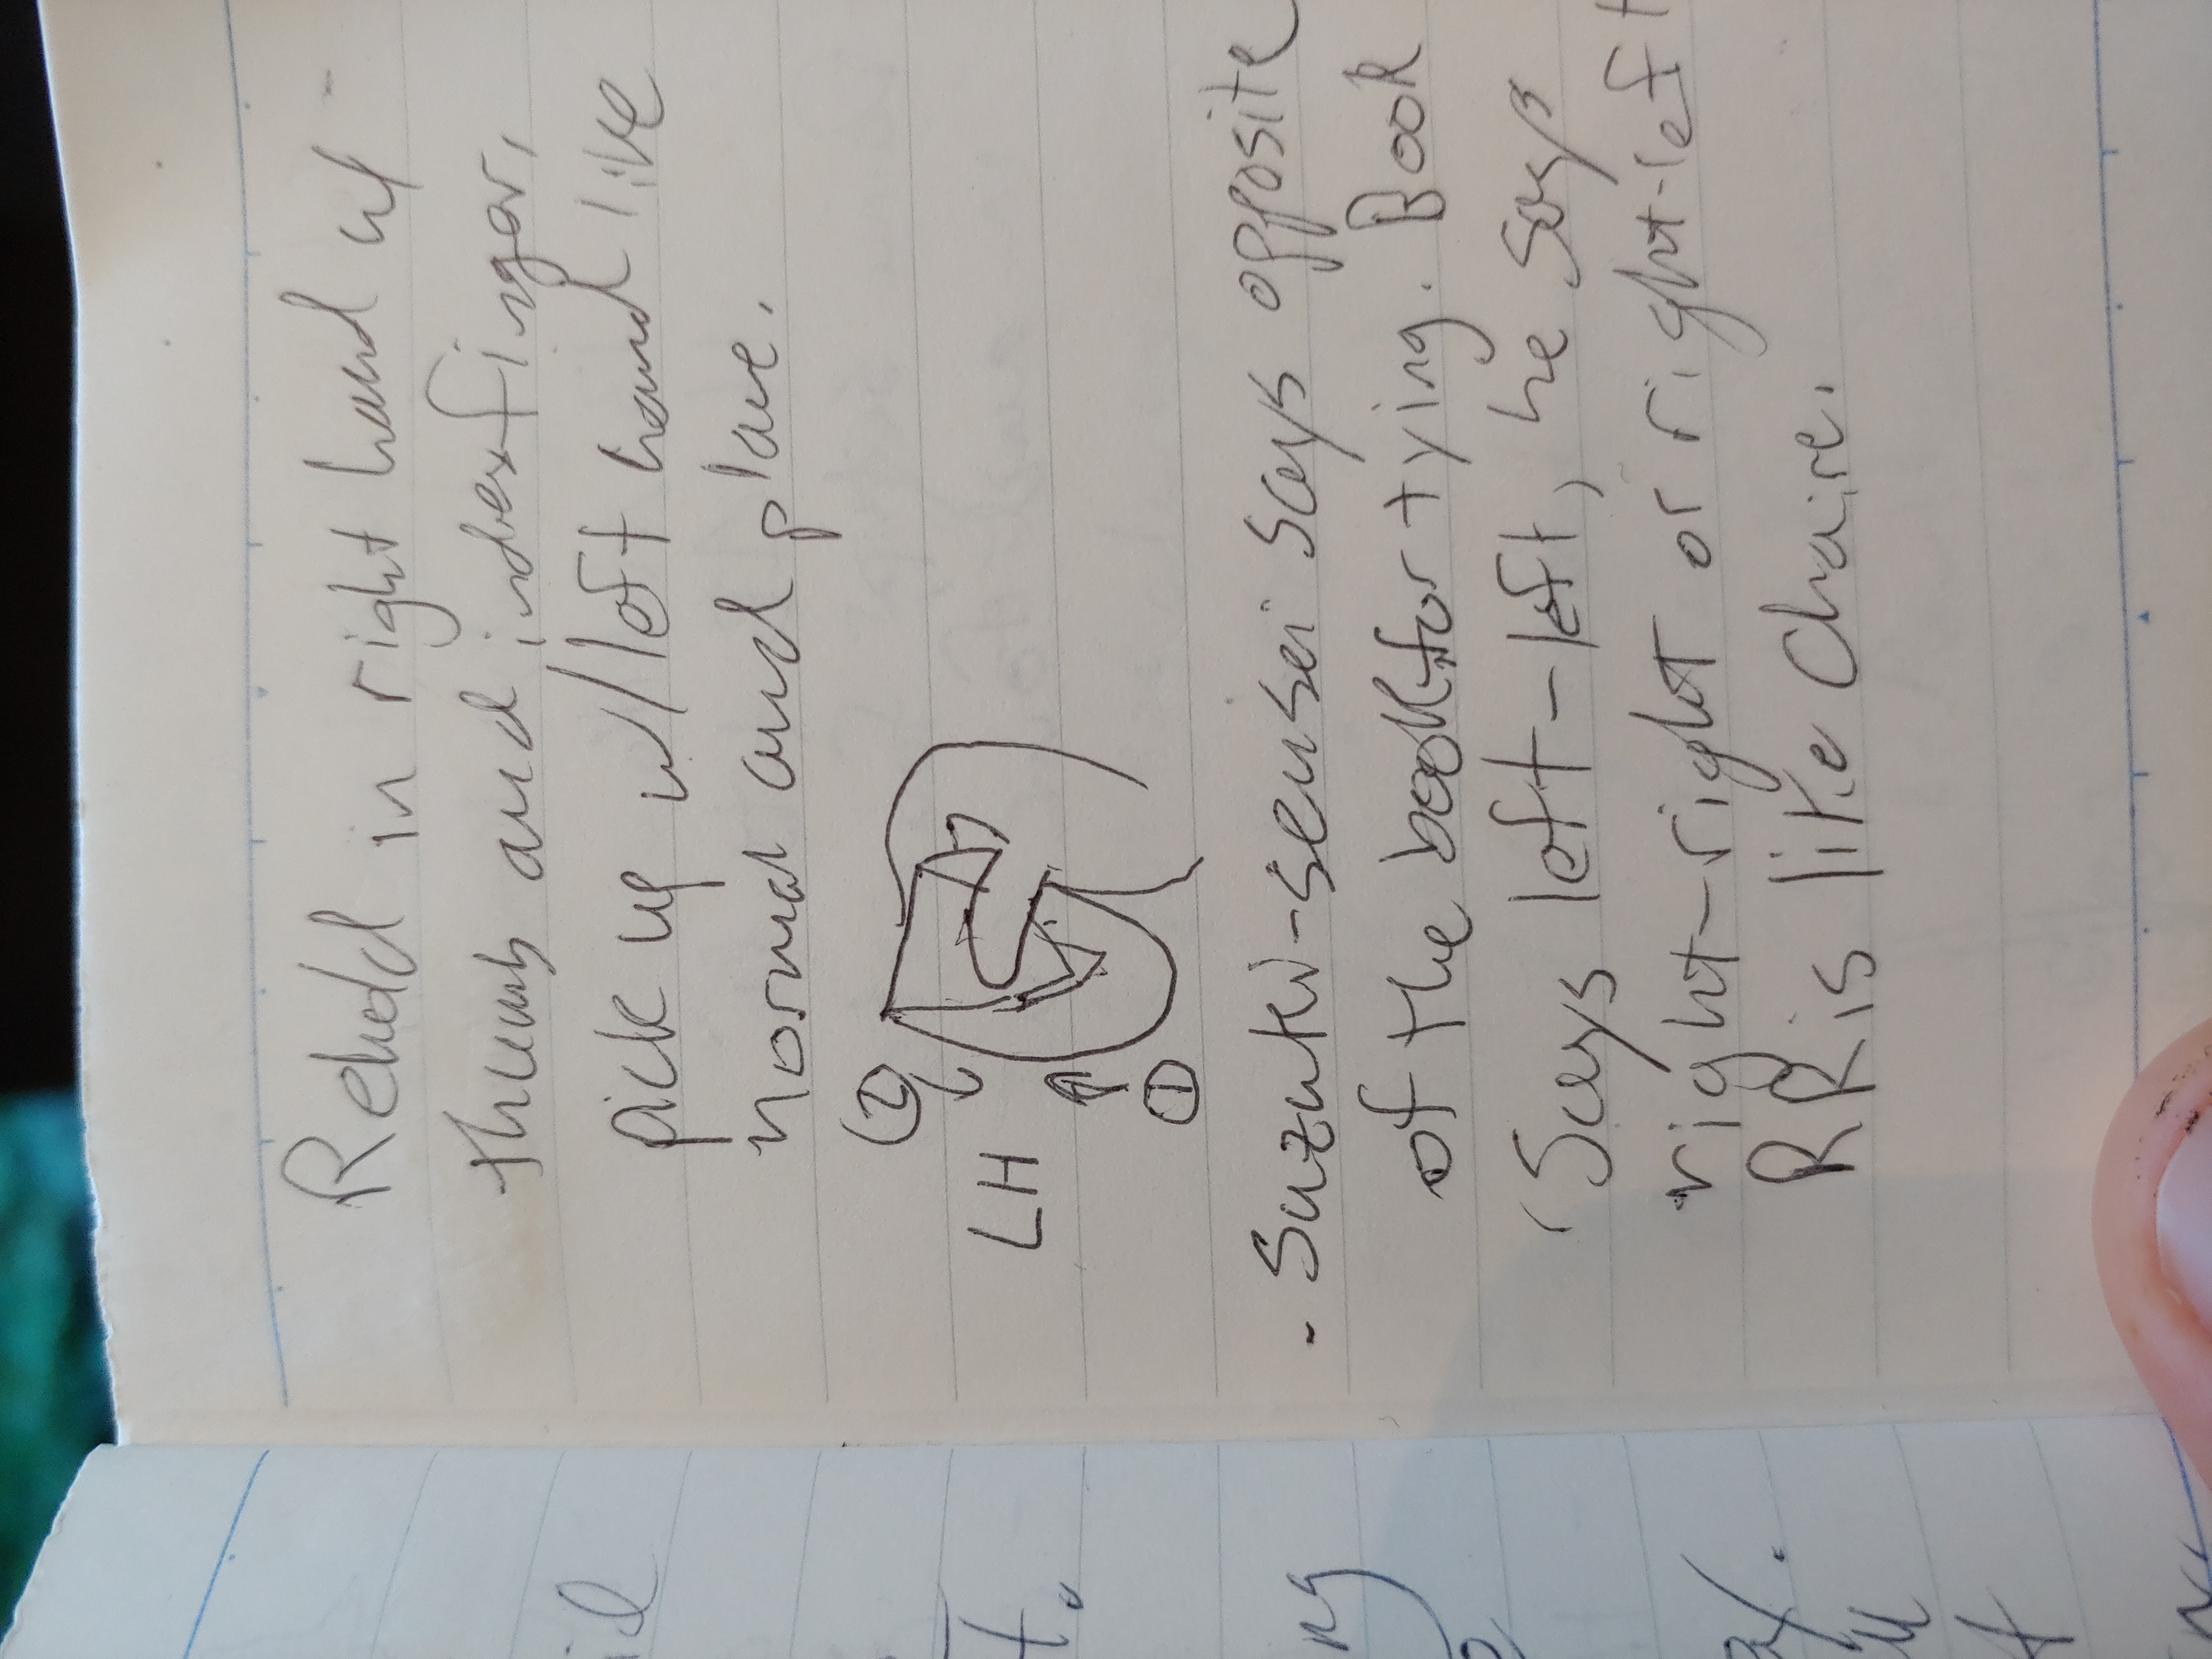 Rehold in right hand w/
thumb and index finger,
pick up w/ left hand like
normal and place.
②
LH
①
- Suzuki-sensei says opposite
of the book for tying. Book
(says left-left, he says
right-right or right-left
RR is like Chaire.